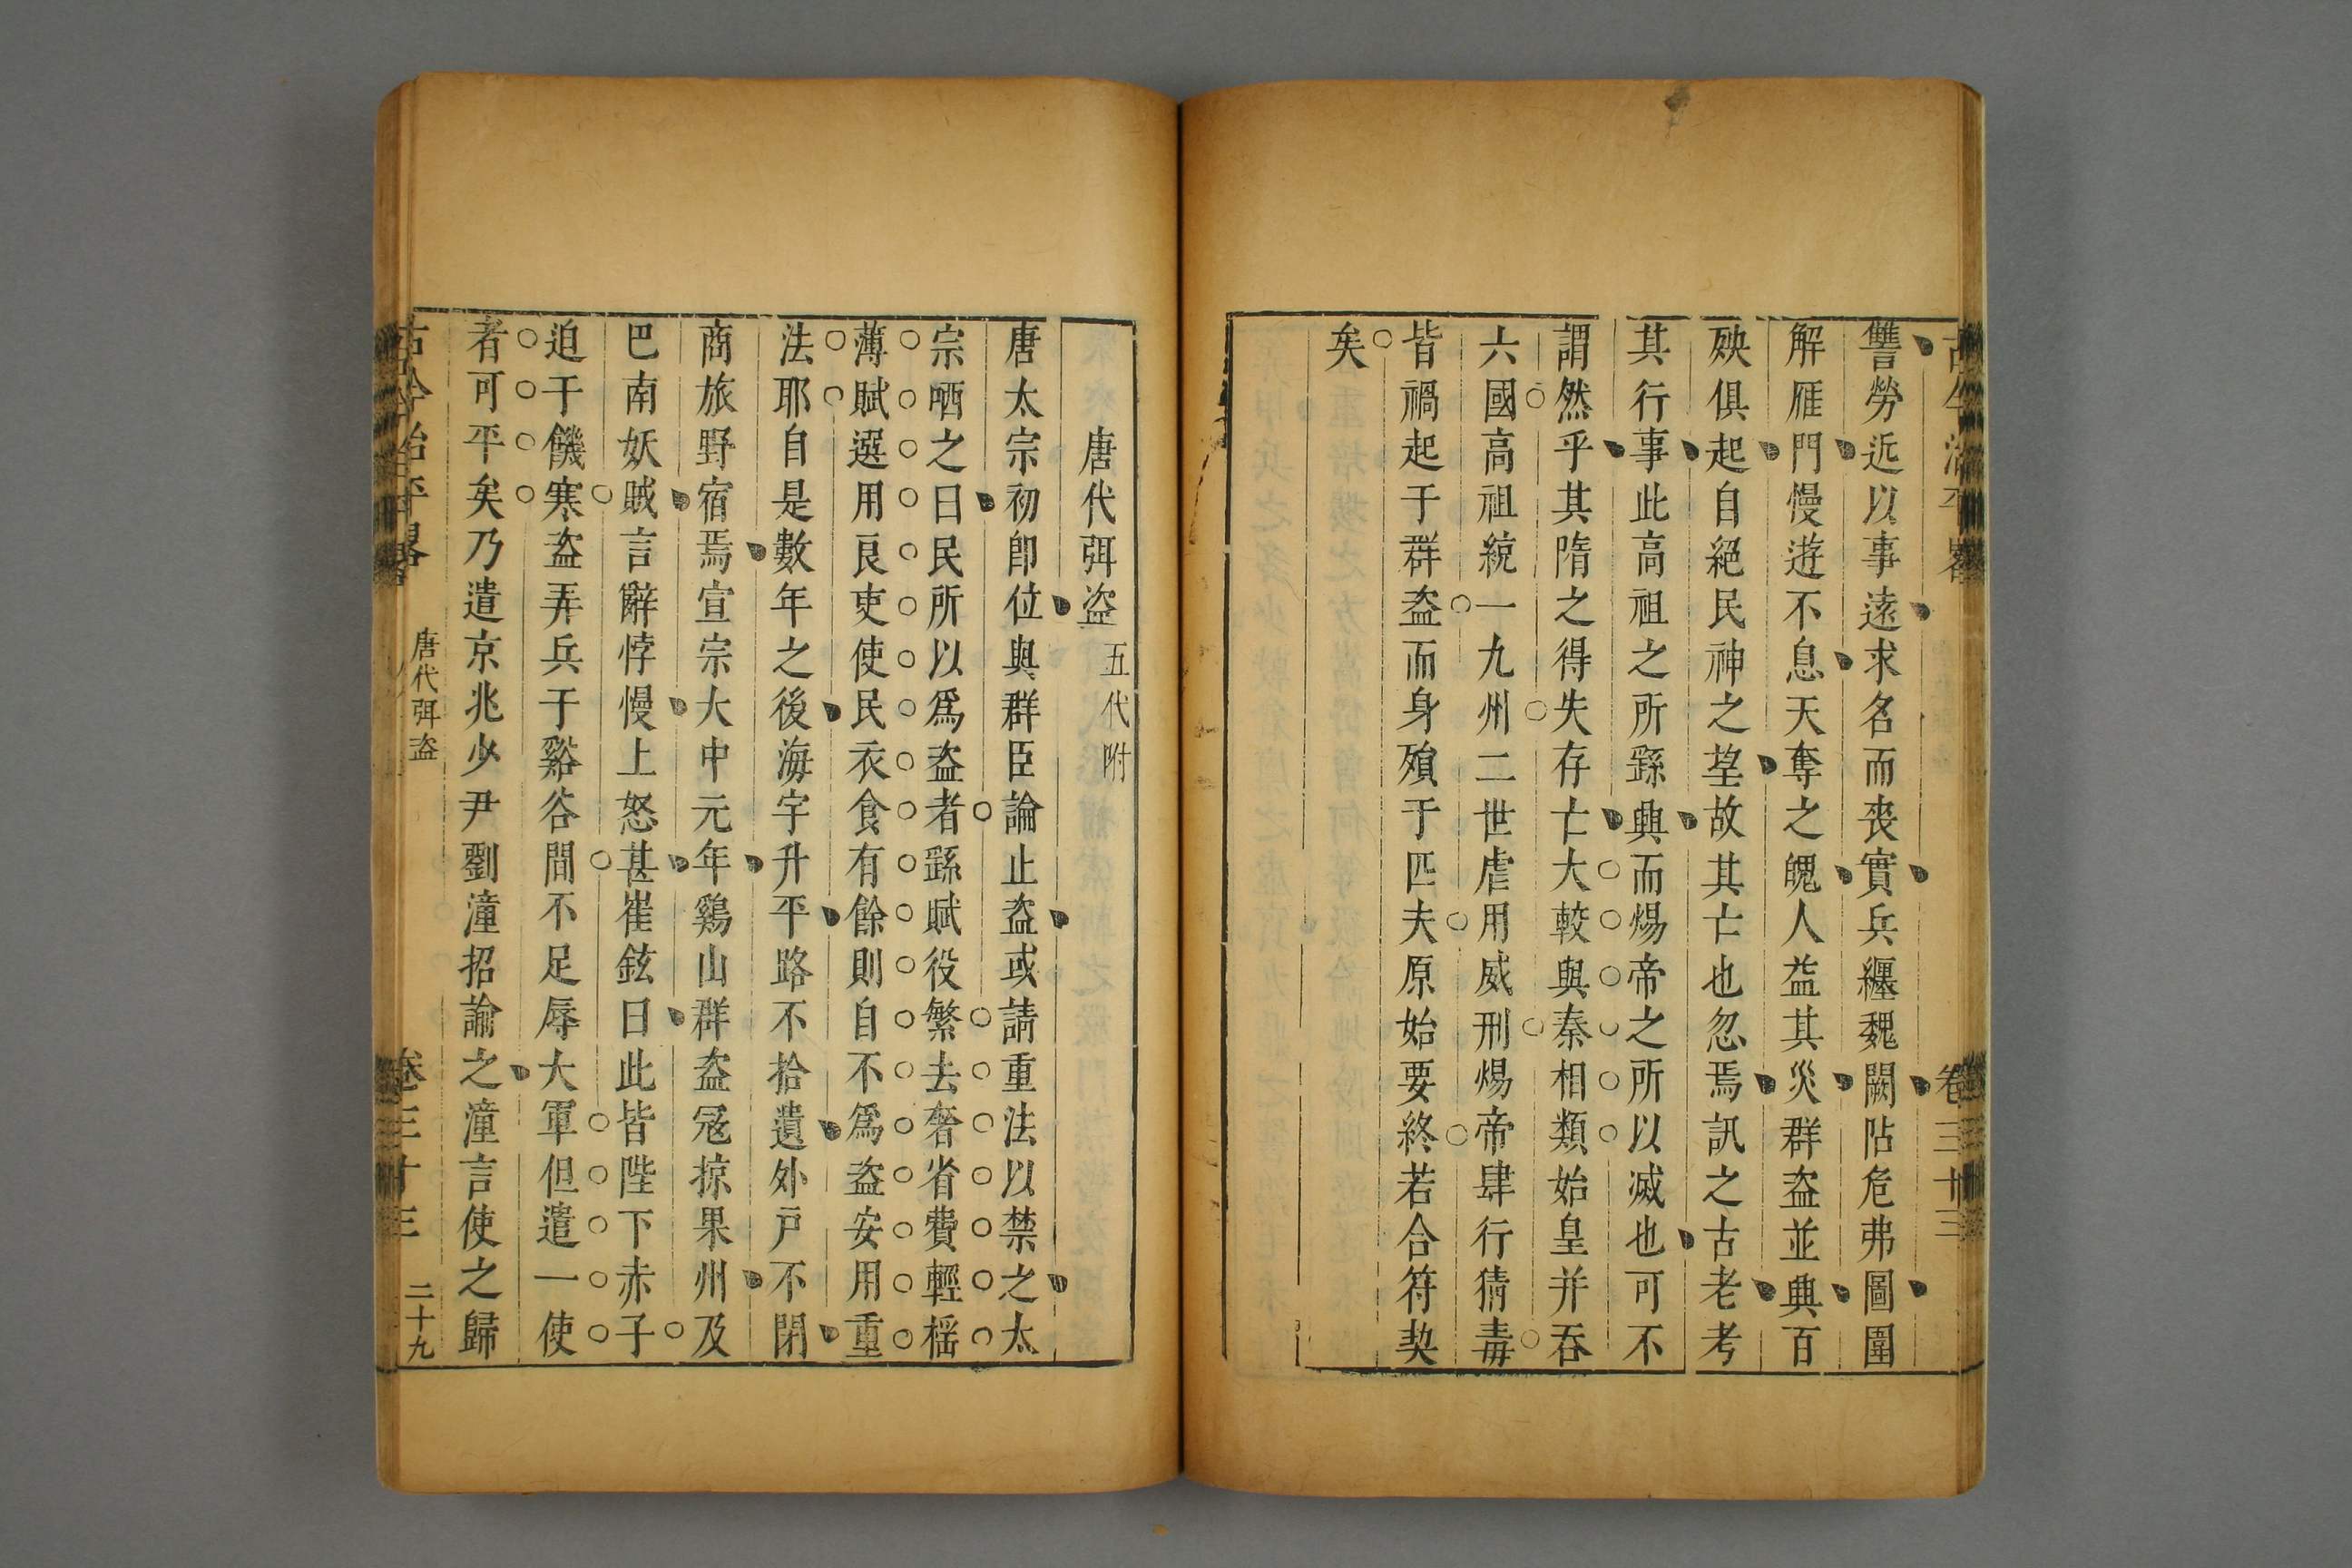 古今治平畧
卷三十三
讐勞近以事遠求名而喪實兵纏魏闕阽危弗圖圍
解雁門慢遊不息天奪之魄人益其災群盗並興百
殃俱起自絕民神之望故其亡也忽焉訊之古老考
其行事此高祖之所繇興而煬帝之所以滅也可不
謂然乎其隋之得失存亡大較與秦相類始皇并吞
六國高祖統一九州二世虐用威刑煬帝肆行猜毒
皆禍起于群盗而身殞于匹夫原始要終若合符契
矣
唐代弭盗 五代附
唐太宗初卽位與群臣論止盗或請重法以禁之太
宗哂之曰民所以爲盗者繇賦役繁去奢省費輕徭
薄賦選用良吏使民衣食有餘則自不爲盗安用重
法耶自是數年之後海宇升平路不拾遺外戸不閉
商旅野宿焉宣宗大中元年鷄山群盗冦掠果州及
巴南妖賊言辭悖慢上怒甚崔鉉曰此皆陛下赤子
迫于饑寒盗弄兵于谿谷間不足辱大軍但遣一使
者可平矣乃遣京兆少尹劉潼招諭之潼言使之歸
古今治平畧
唐代弭盗
卷三十三
二十九